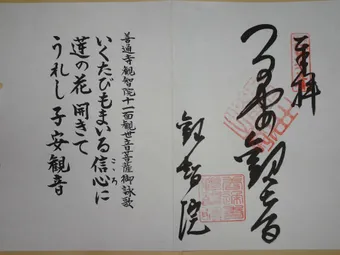 奉拝
子安観世音
観智院
善通寺観智院十一面観世音菩薩御詠歌
いくたびもまいる信心に
こころ
蓮の花 開きて
うれし 子安観音